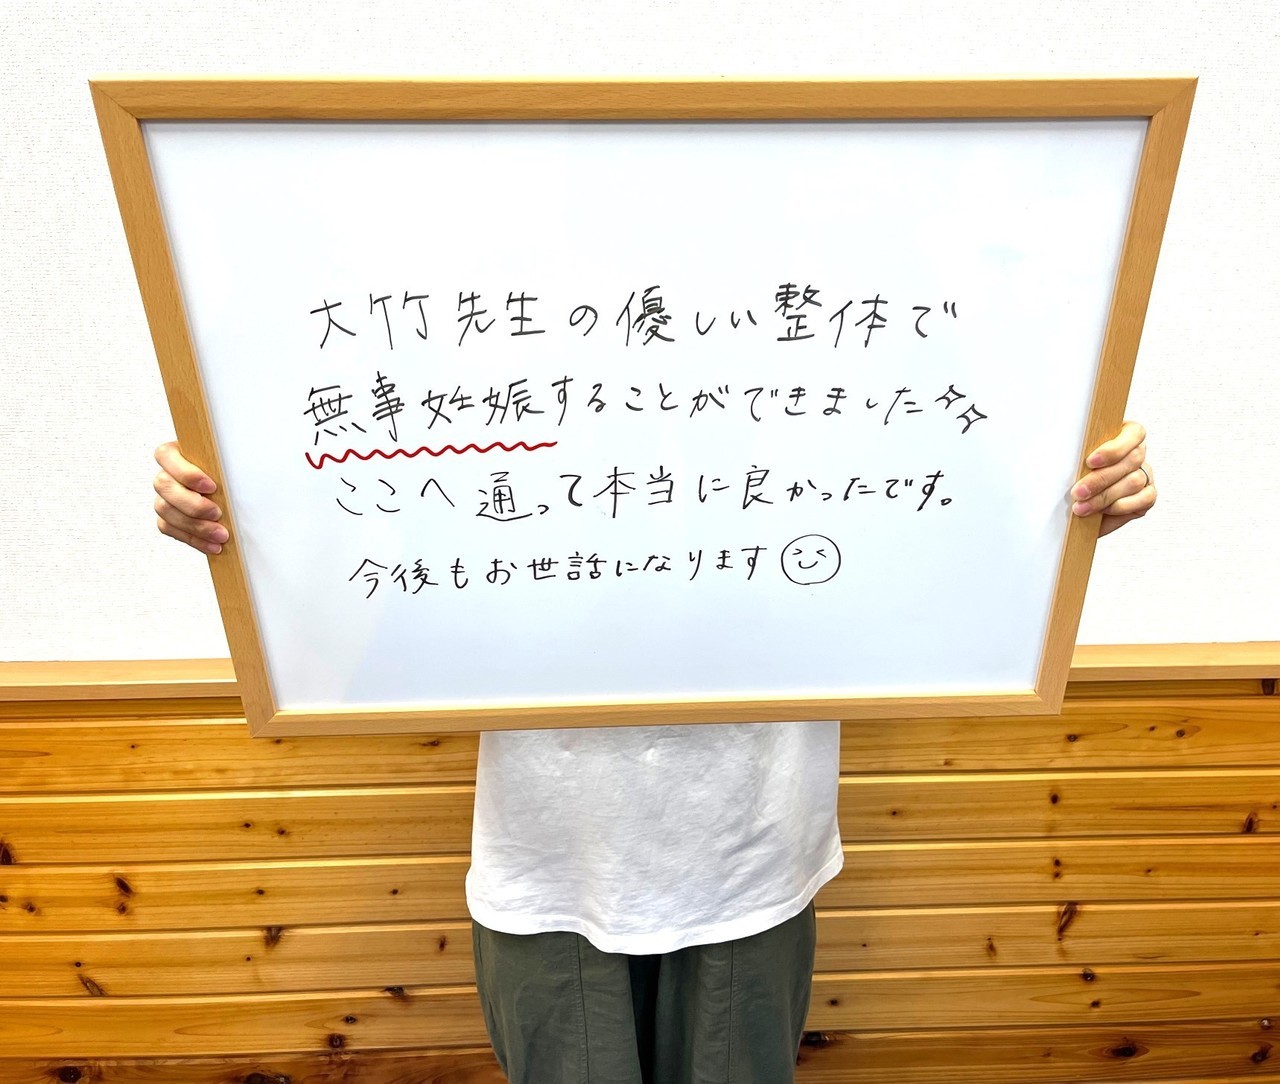 大竹先生の優しい整体で
無事妊娠することができました✨
ここへ通って本当に良かったです。
今後もお世話になります